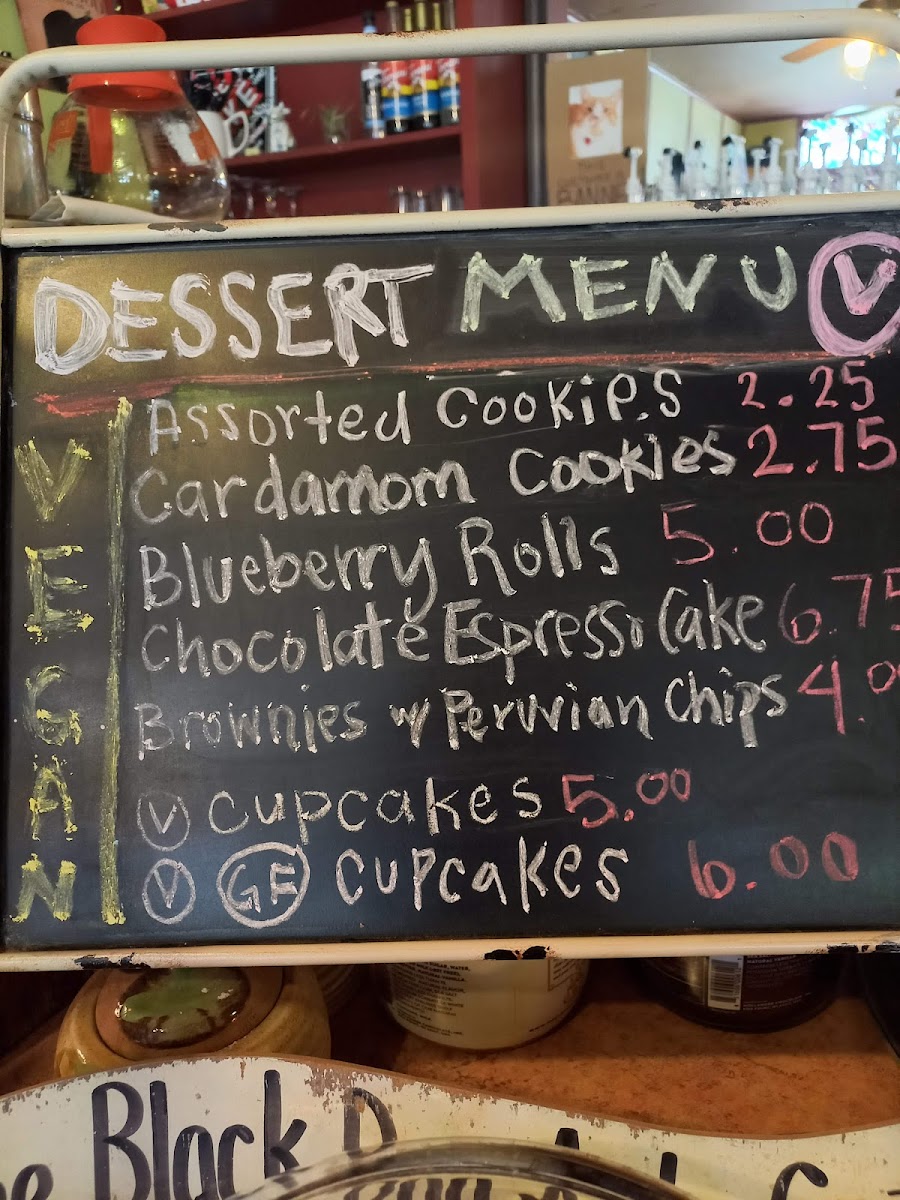 DESSERT MENU V
VEGAN
Assorted Cookies 2.25
Cardamom Cookies 2.75
Blueberry Rolls 5.00
Chocolate Espresso Cake 6.75
Brownies w/ Peruvian Chips 4.00
V Cupcakes 5.00
V GF Cupcakes 6.00
Black